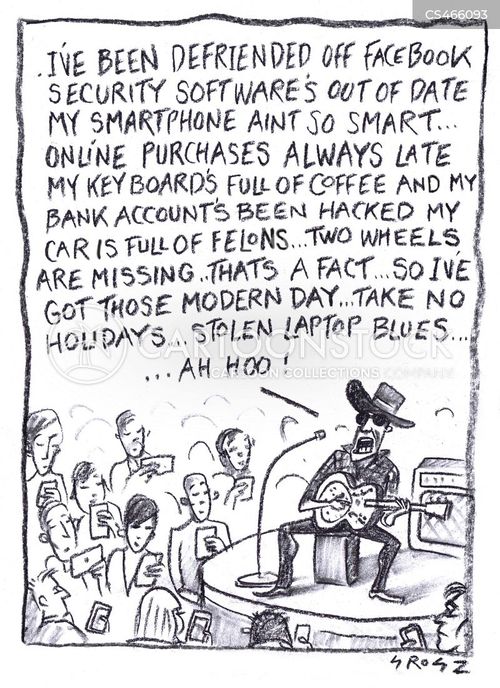 CS466093
.I'VE BEEN DEFRIENDED OFF FACEBOOK
SECURITY SOFTWARE'S OUT OF DATE
MY SMARTPHONE AINT SO SMART...
ONLINE PURCHASES ALWAYS LATE
MY KEYBOARD'S FULL OF COFFEE AND MY
BANK ACCOUNT'S BEEN HACKED MY
CAR IS FULL OF FELONS...TWO WHEELS
ARE MISSING..THATS A FACT...SO I'VE
GOT THOSE MODERN DAY...TAKE NO
HOLIDAYS...STOLEN LAPTOP BLUES...
...AH HOO!
CARTOONSTOCK
CARTOON COLLECTIONS COMPANY
GROSZ